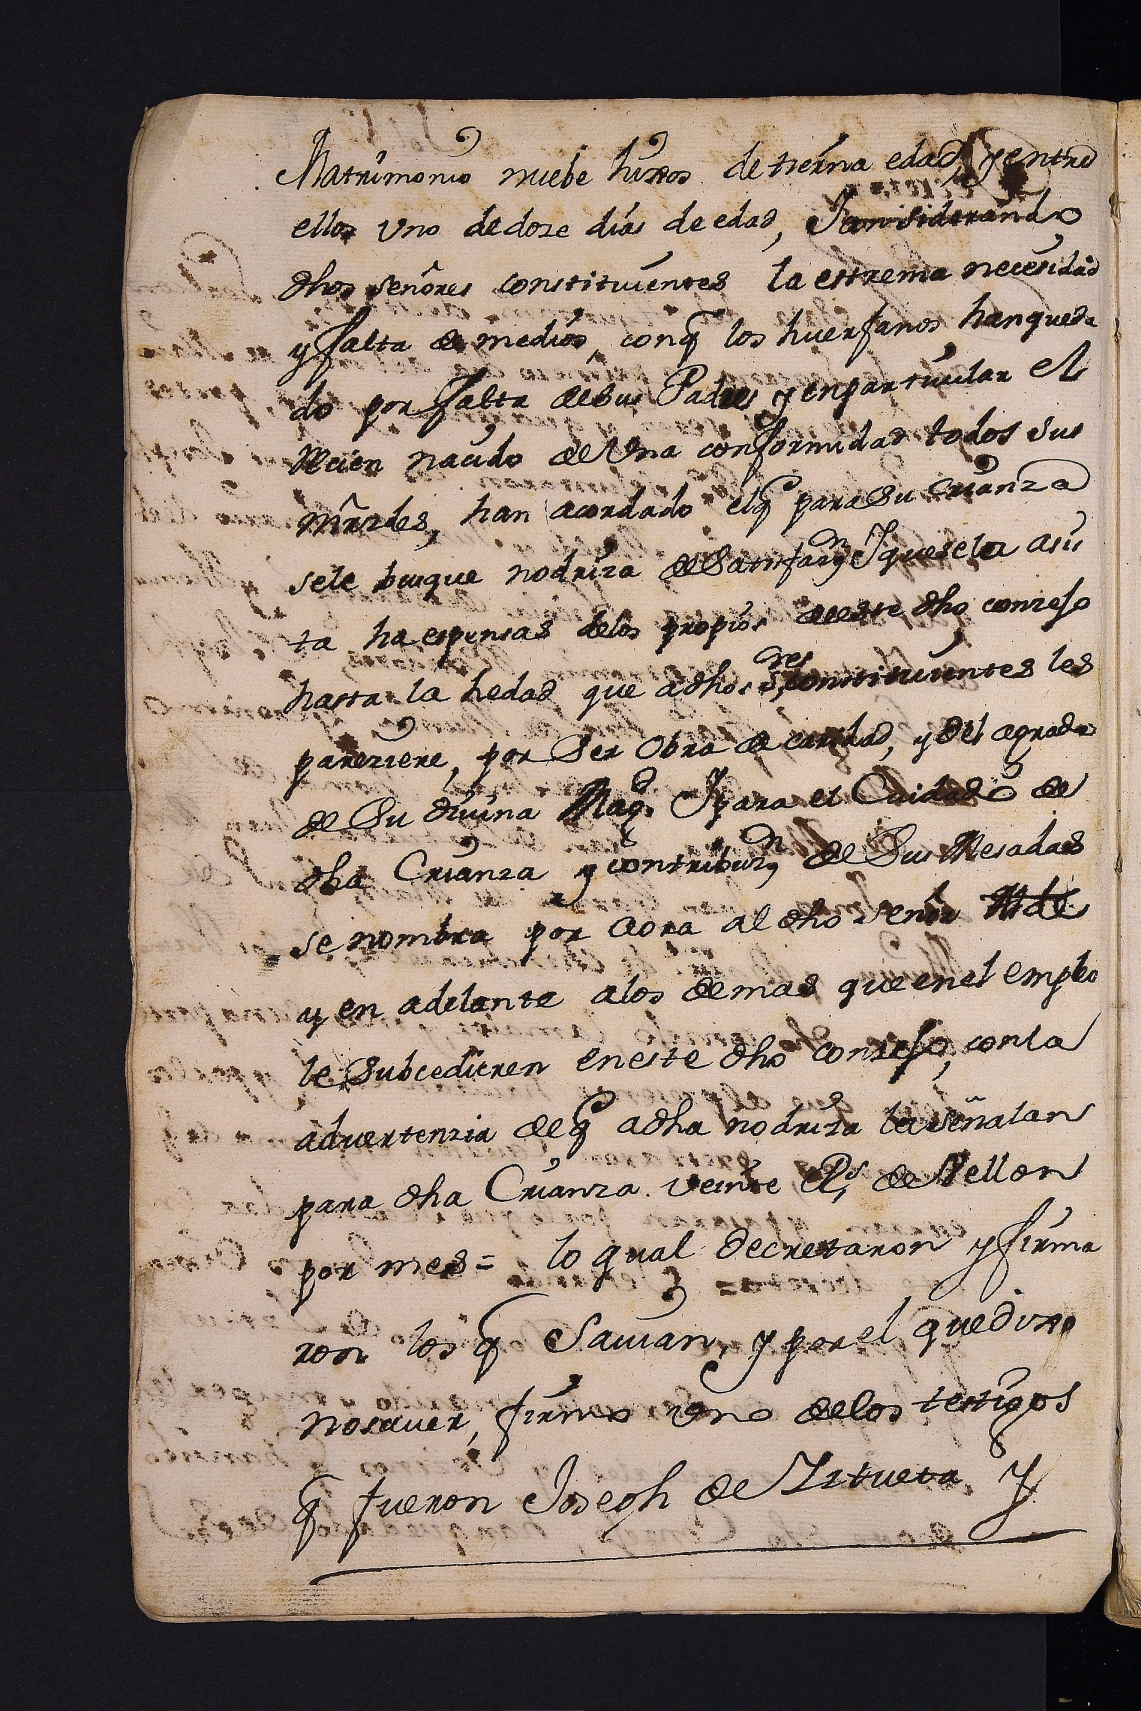 Matrimonio nuebe hixos de tierna edad, y entre
ellos Uno de doze dias de edad, I considerando
dhos señores constituientes la estrema necesidad
y falta de medios, conq̃ los huerfanos han queda
do por falta de sus Padres y en particular el
Recien nacido de Una conformidad todos sus
mr̃zdes, han acordado elq̃ para su crianza
sele busque nodriza de satisfazn I que sela asis
ta ha espensas delos propios de este dho conzejo
hasta la hedad que a dhos sres constituientes les
pareziere, por ser obra de caridad, y del agrado
de Su divina Magd. I para el Cuidado de
dha Crianza y contribuzn de sus Mesadas
se nombra por aora al dho señor Alde
y en adelante a los demas que en el empleo
le subcedieren en este dho conzejo, con la
advertenzia de q̃ a dha nodriza le señalan
para dha Crianza veinte Rs de Vellon
por mes = lo qual decretaron y firma
ron los q̃ savian, y por el que dixo
no saver, firmo uno de los testigos
q̃ fueron Joseph de Yztueta Y